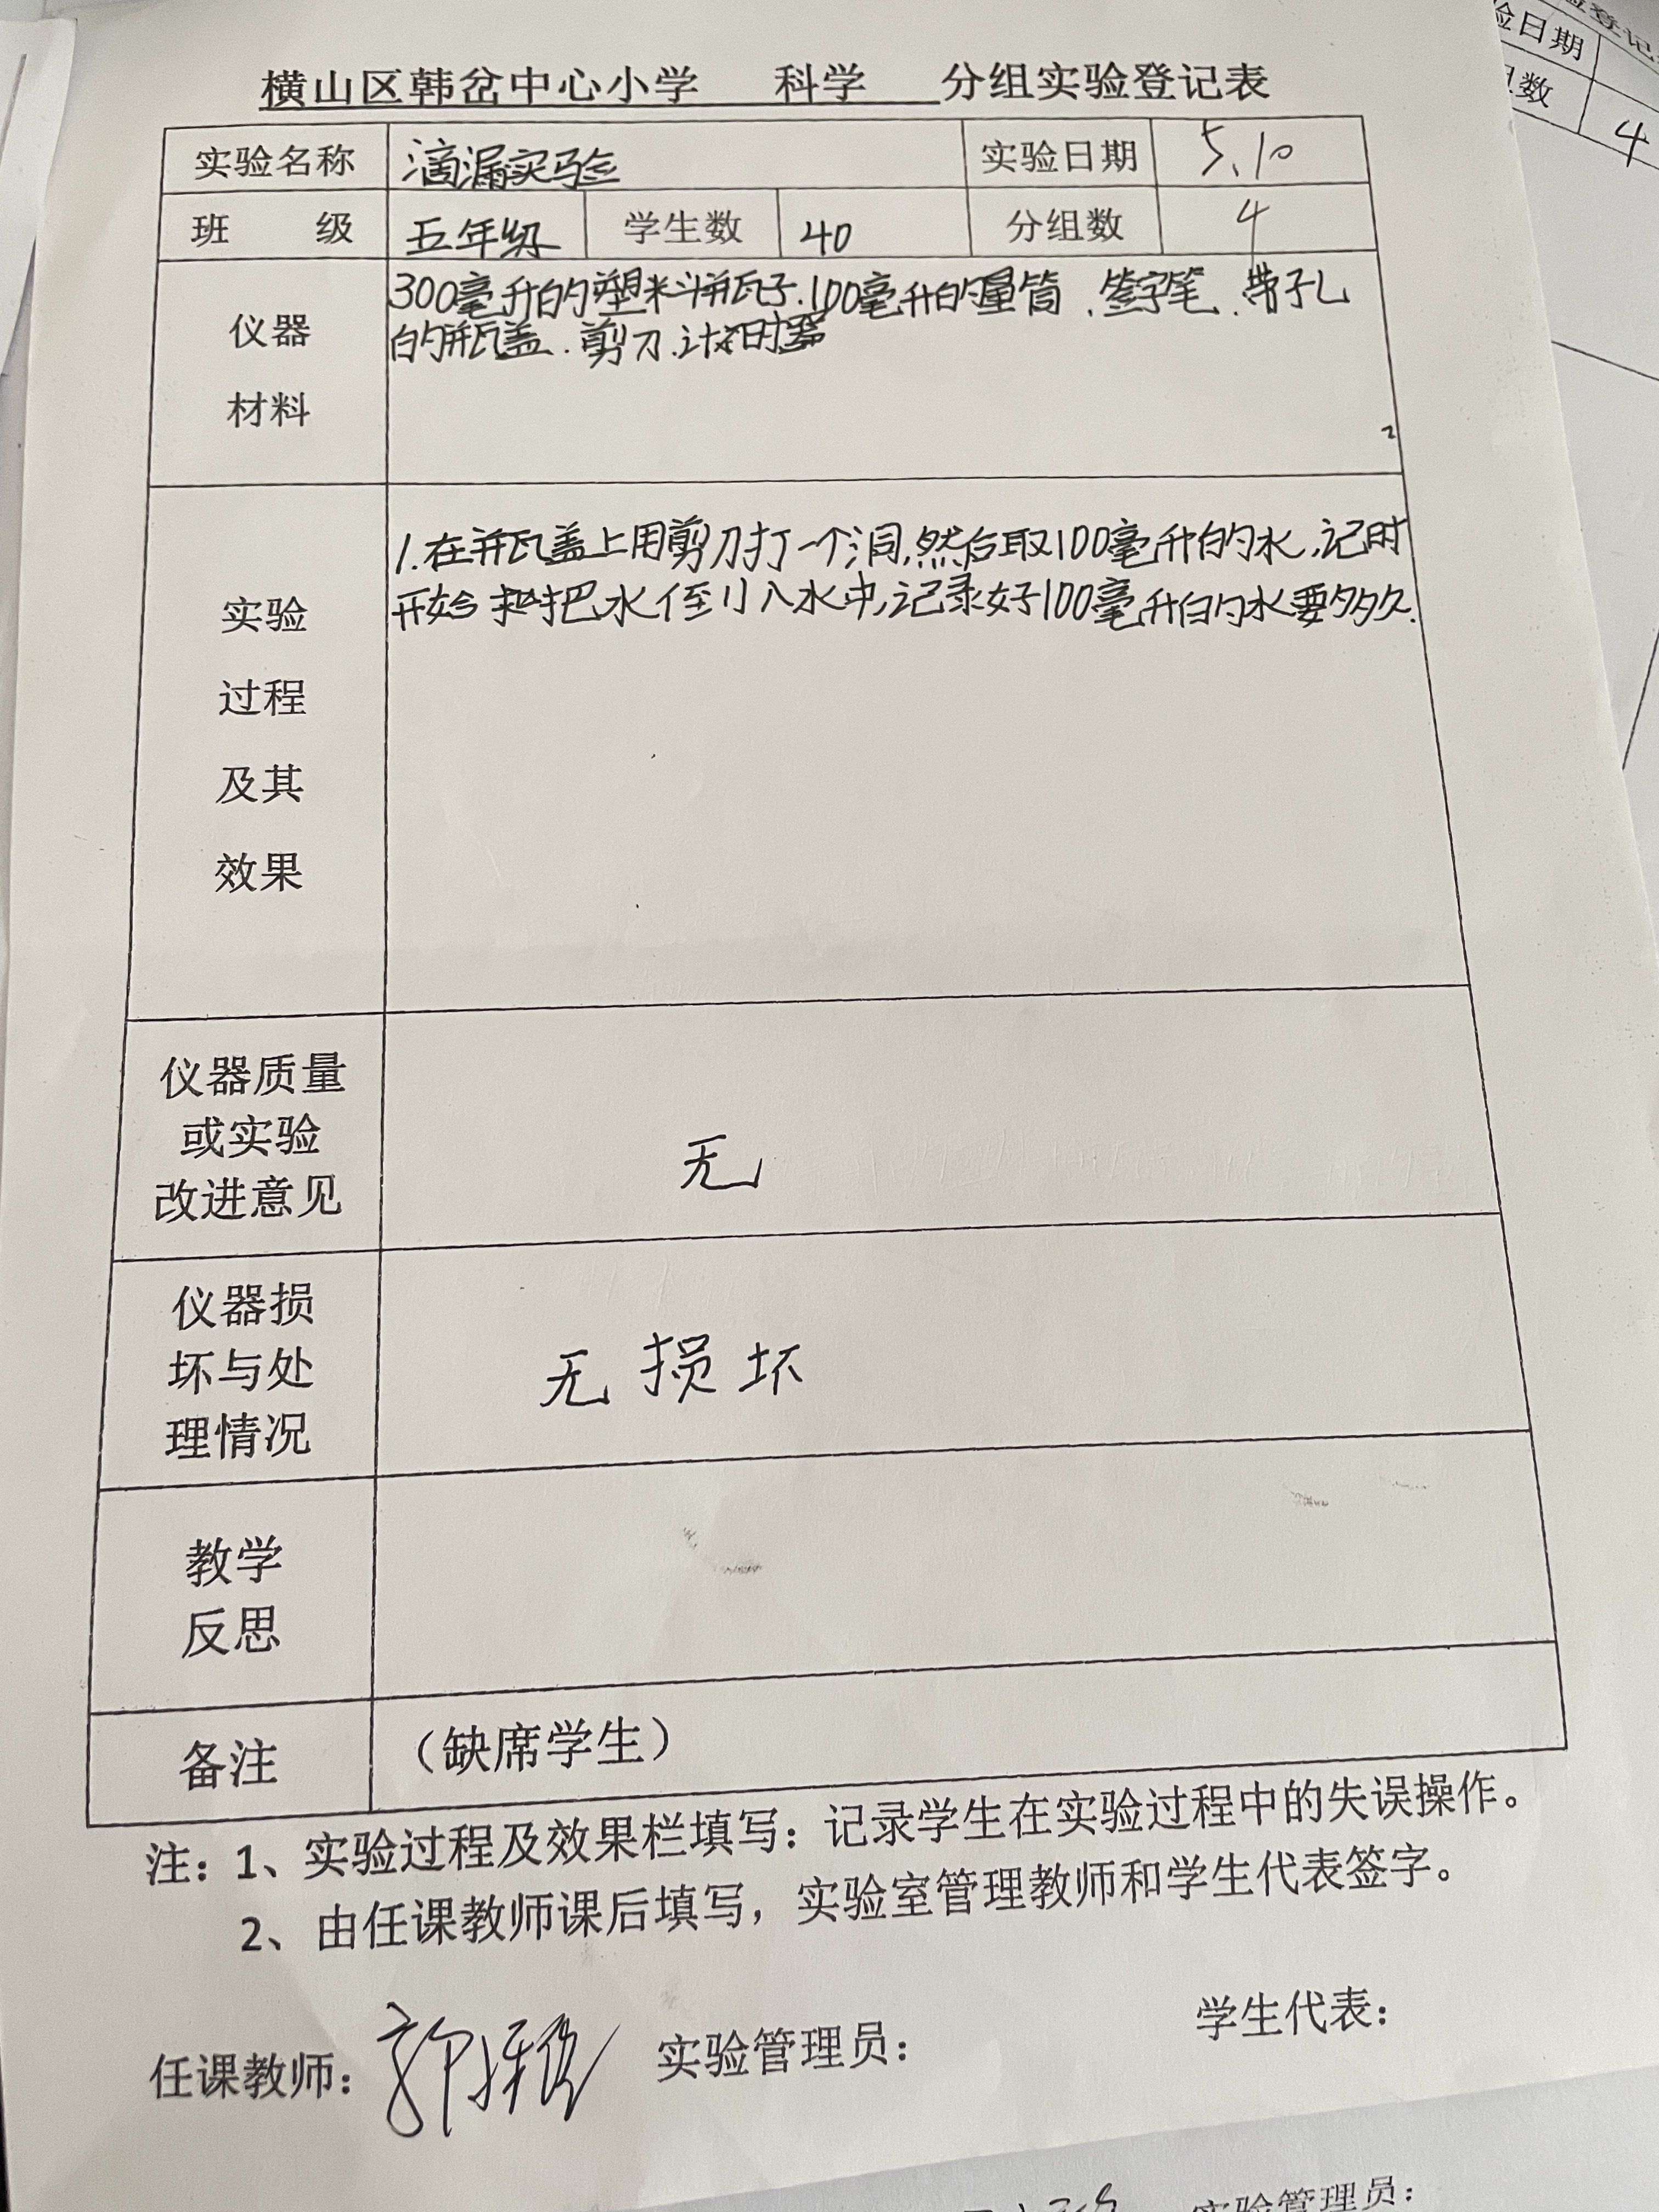 横山区韩岔中心小学 科学 分组实验登记表
实验名称 滴漏实验 实验日期 5.10
班 级 五年级 学生数 40 分组数 4
仪器
材料
300毫升的塑料瓶子.100毫升的量筒、签字笔、带孔
的瓶盖.剪刀.计时器
实验
过程
及其
效果
1.在瓶盖上用剪刀打一个洞,然后取100毫升的水,记时
开始 把水倒入水中,记录好100毫升的水要多久.
仪器质量
或实验
改进意见
无
仪器损
坏与处
理情况
无损坏
教学
反思
备注 （缺席学生）
注：1、实验过程及效果栏填写：记录学生在实验过程中的失误操作。
2、由任课教师课后填写，实验室管理教师和学生代表签字。
学生代表：
任课教师： 实验管理员：
验日期
数 4
实验管理员：